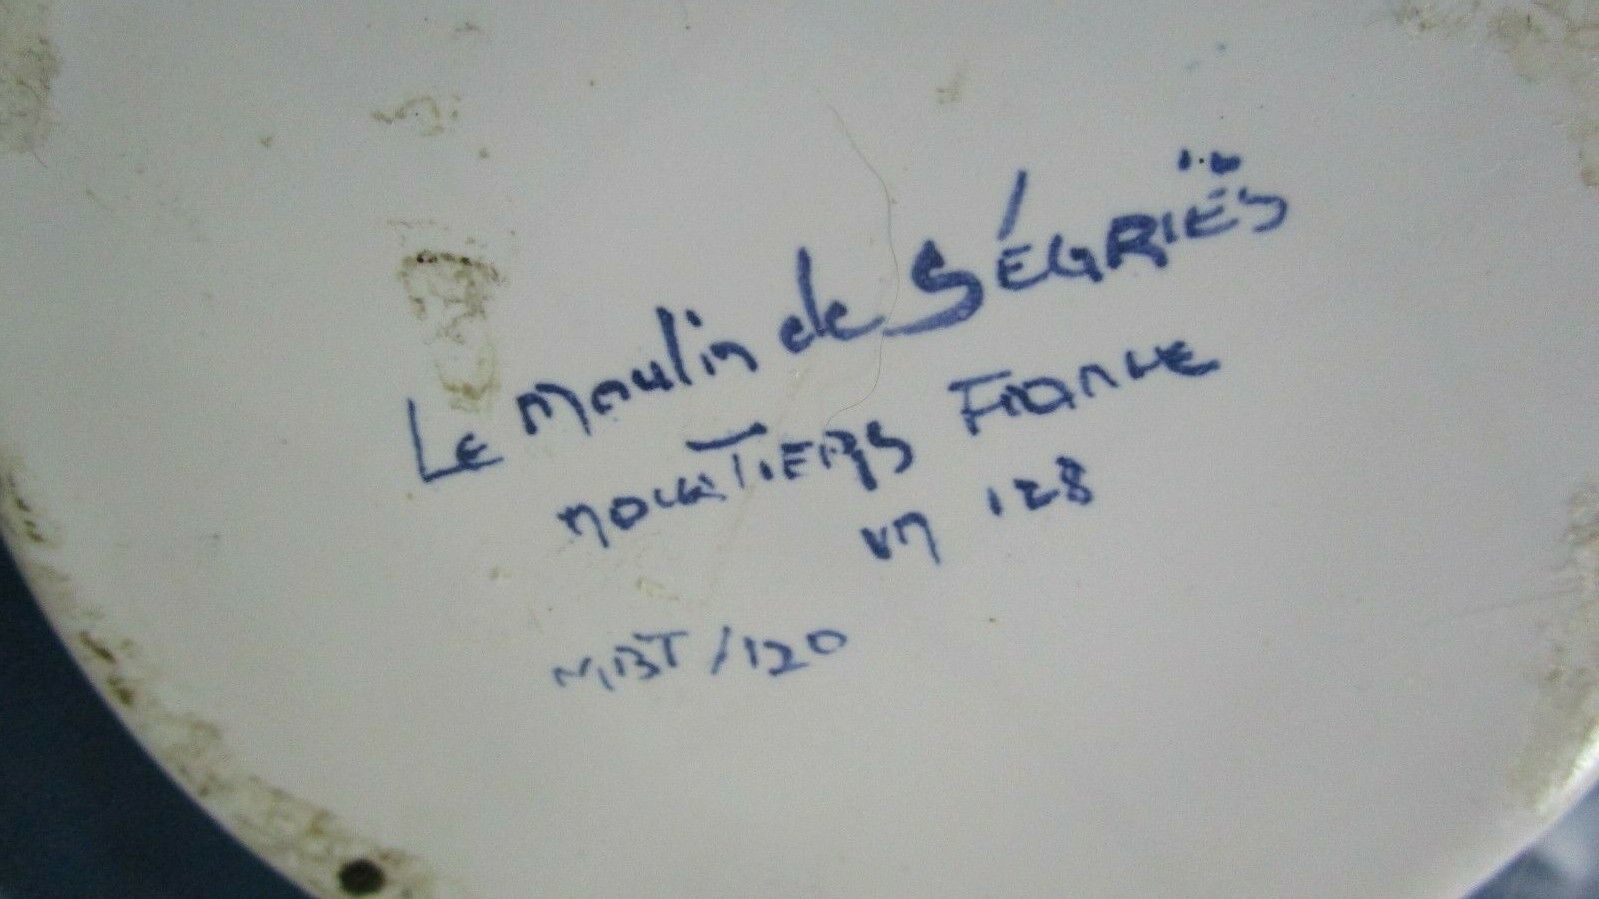 Le moulin de SÉGRIËS
MOUSTIERS FRANCE
vn 128
MBT/120